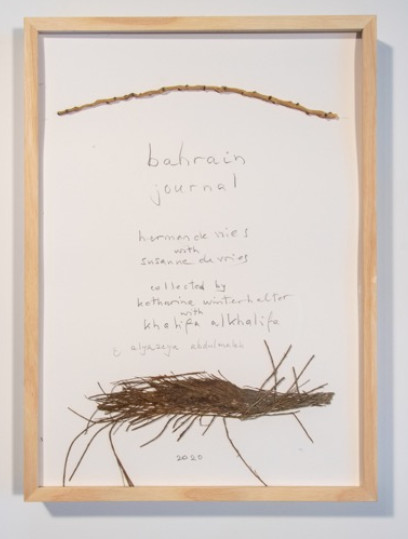 bahrain
journal
herman de vries
with
susanne de vries
collected by
katharina winterhalter
with
khalifa alkhalifa
& abdulmahh
2020